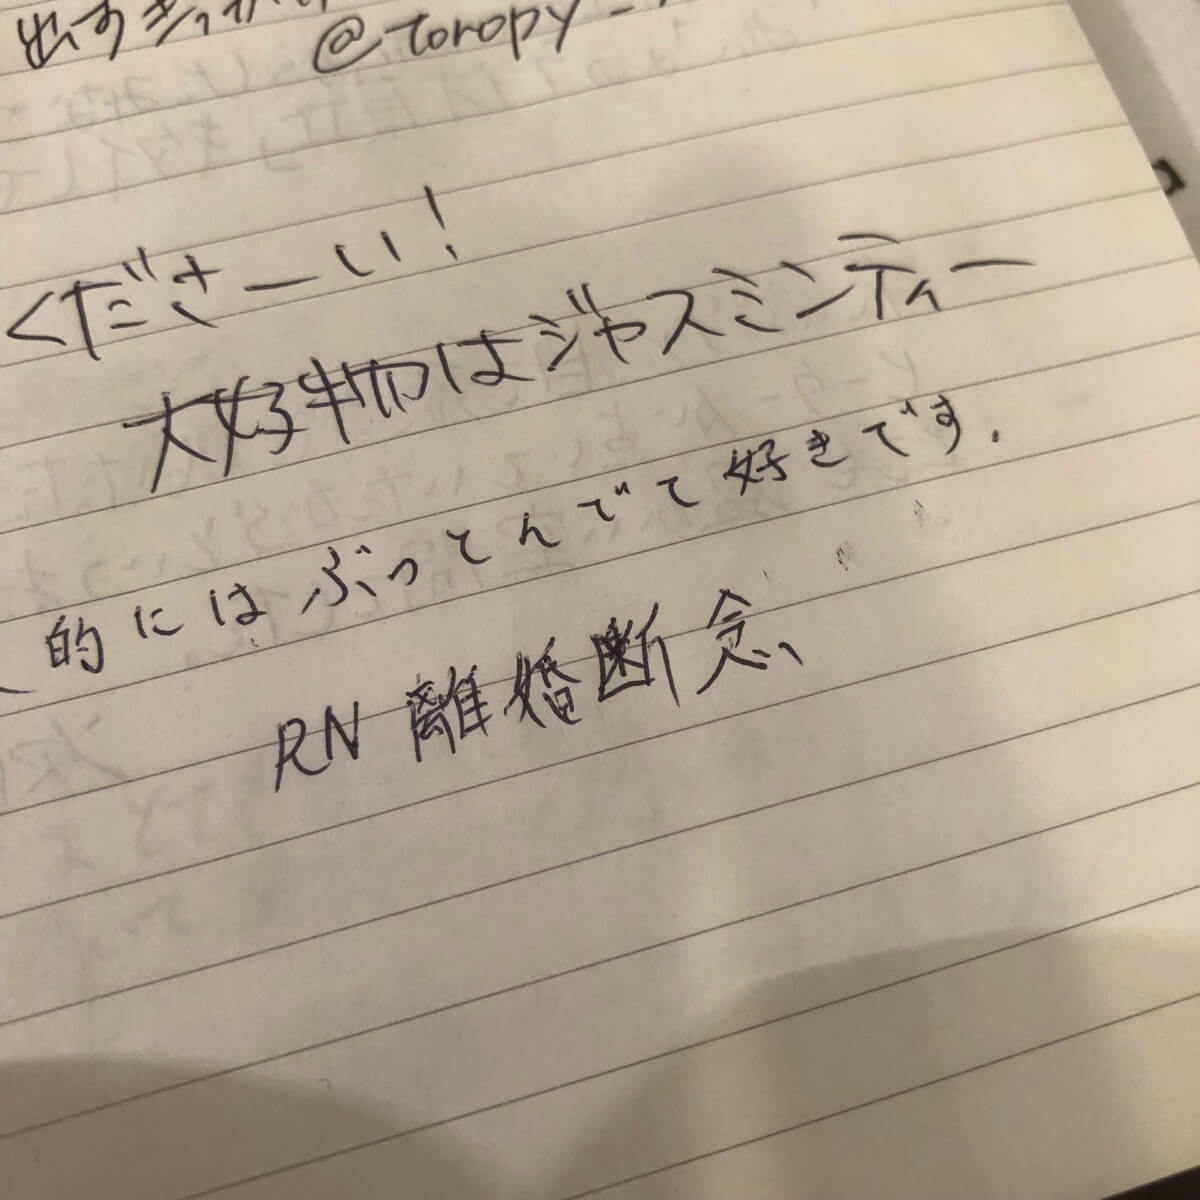 出すきっか
@toropy_
くださーい!
大好物はジャスミンティー
的にはぶってんでて好きです.
RN 離婚断念